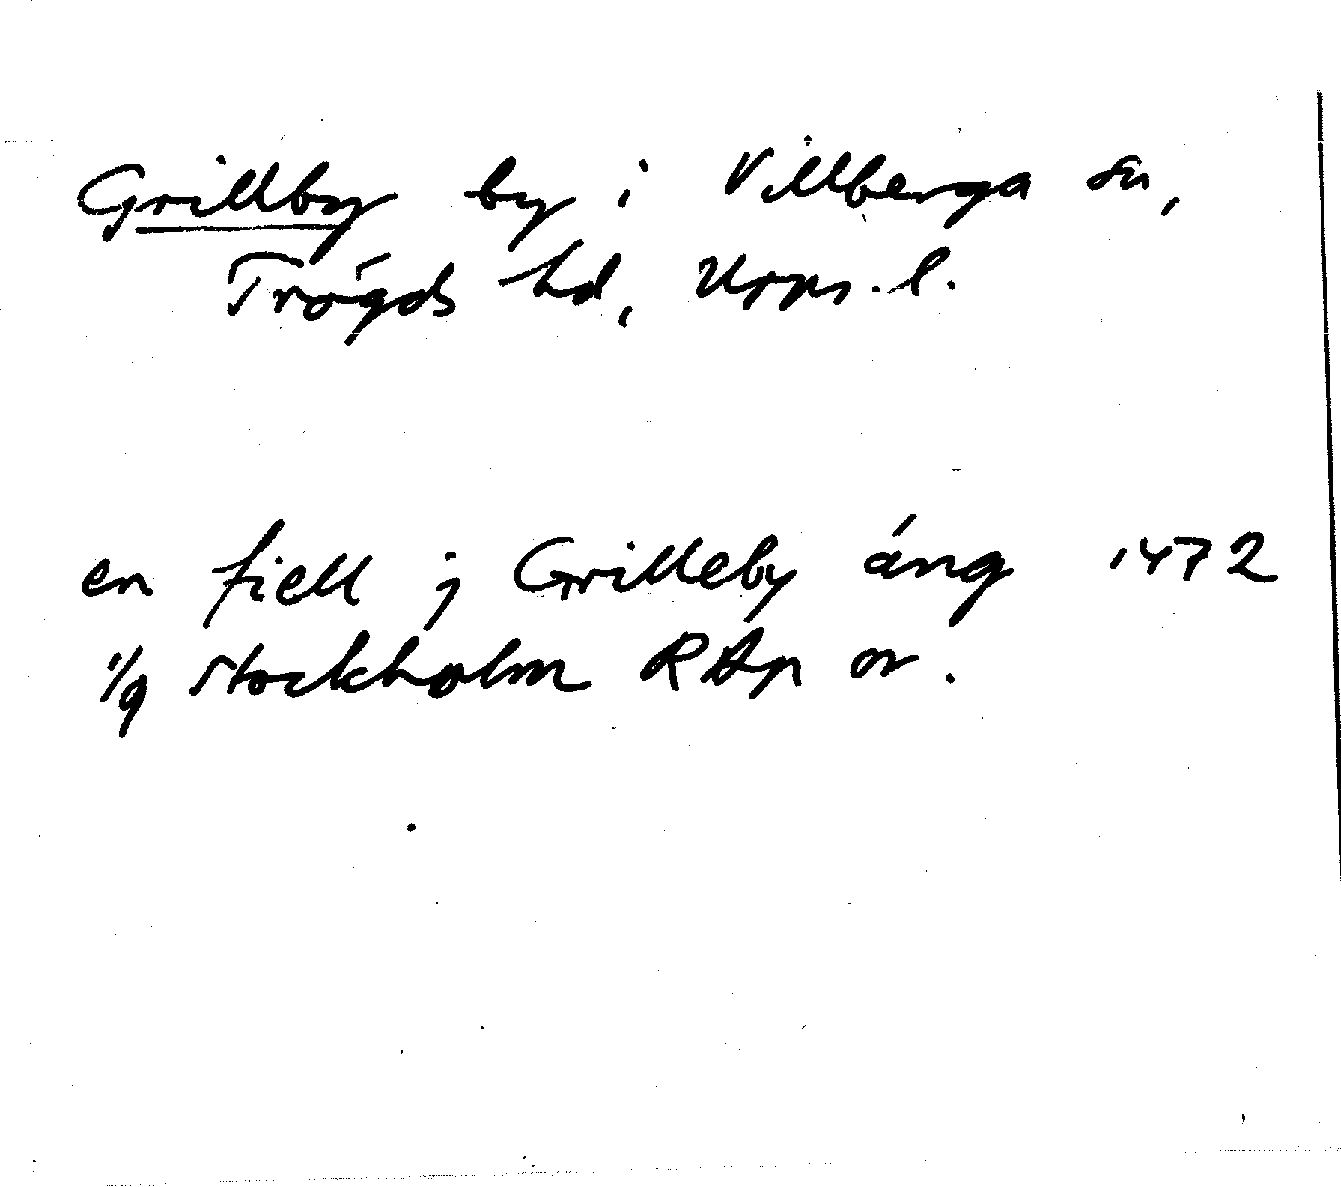 Grillby by i Villberga sn,
Trögds hd, Upps. l.
en fiell j Grilleby äng 1472
1/9 Stockholm RAp or.